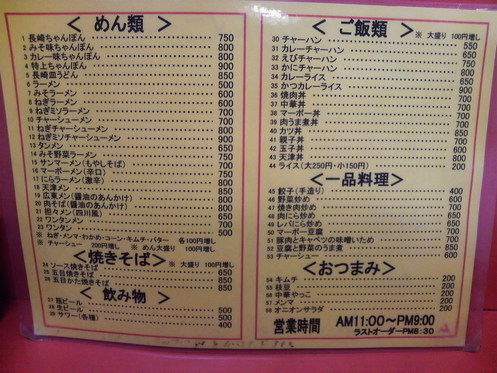 ＜めん類＞
1 長崎ちゃんぽん 750
2 みそ味ちゃんぽん 800
3 カレー味ちゃんぽん 800
4 特上ちゃんぽん 900
5 長崎皿うどん 850
6 ラーメン
7 みそラーメン
8 ねぎラーメン
9 ねぎミソラーメン
10 チャーシューメン
11 ねぎチャーシューメン
12 ねぎミソチャーシューメン
13 タンメン
14 みそ野菜ラーメン
15 サンマーメン(もやしそば)
16 マーボーメン(辛口)
17 にらラーメン(激辛)
18 天津メン
19 広東メン(醤油のあんかけ)
20 肉そば(醤油のあんかけ)
21 担々メン(四川風)
22 ワンタンメン
23 ワンタン
※ ねぎ・メンマ・わかめ・コーン・キムチ・バター 各100円増し
※ チャーシュー 200円増し ※ めん大盛り 100円増し
＜焼きそば＞ ※ 大盛り 100円増し
24 ソース焼きそば 650
25 五目焼きそば 850
26 五目かた焼きそば 850
＜飲み物＞
27 瓶ビール 500
28 生ビール 500
29 サワー(各種) 400
＜ご飯類＞ ※ 大盛り 100円増し
30 チャーハン 550
31 カレーチャーハン 650
32 えびチャーハン 800
33 かにチャーハン 800
34 カレーライス 650
35 かつカレーライス 900
36 焼肉丼 700
37 中華丼 700
38 マーボー丼 700
39 肉うま煮丼 700
40 カツ丼 850
41 親子丼 700
42 玉子丼 600
43 天津丼
44 ライス(大250円・小150円)
＜一品料理＞
45 餃子(手造り) 400
46 野菜炒め 600
47 焼き肉炒め 700
48 肉にら炒め 650
49 レバにら炒め 650
50 マーボー豆腐 700
51 豚肉とキャベツの味噌いため 700
52 豆腐と野菜のうま煮 700
53 チャーシュー 600
＜おつまみ＞
54 キムチ 200
55 枝豆 200
56 中華やっこ 200
57 メンマ 200
58 オニオンサラダ 200
営業時間 AM11:00〜PM9:00
ラストオーダーPM8:30